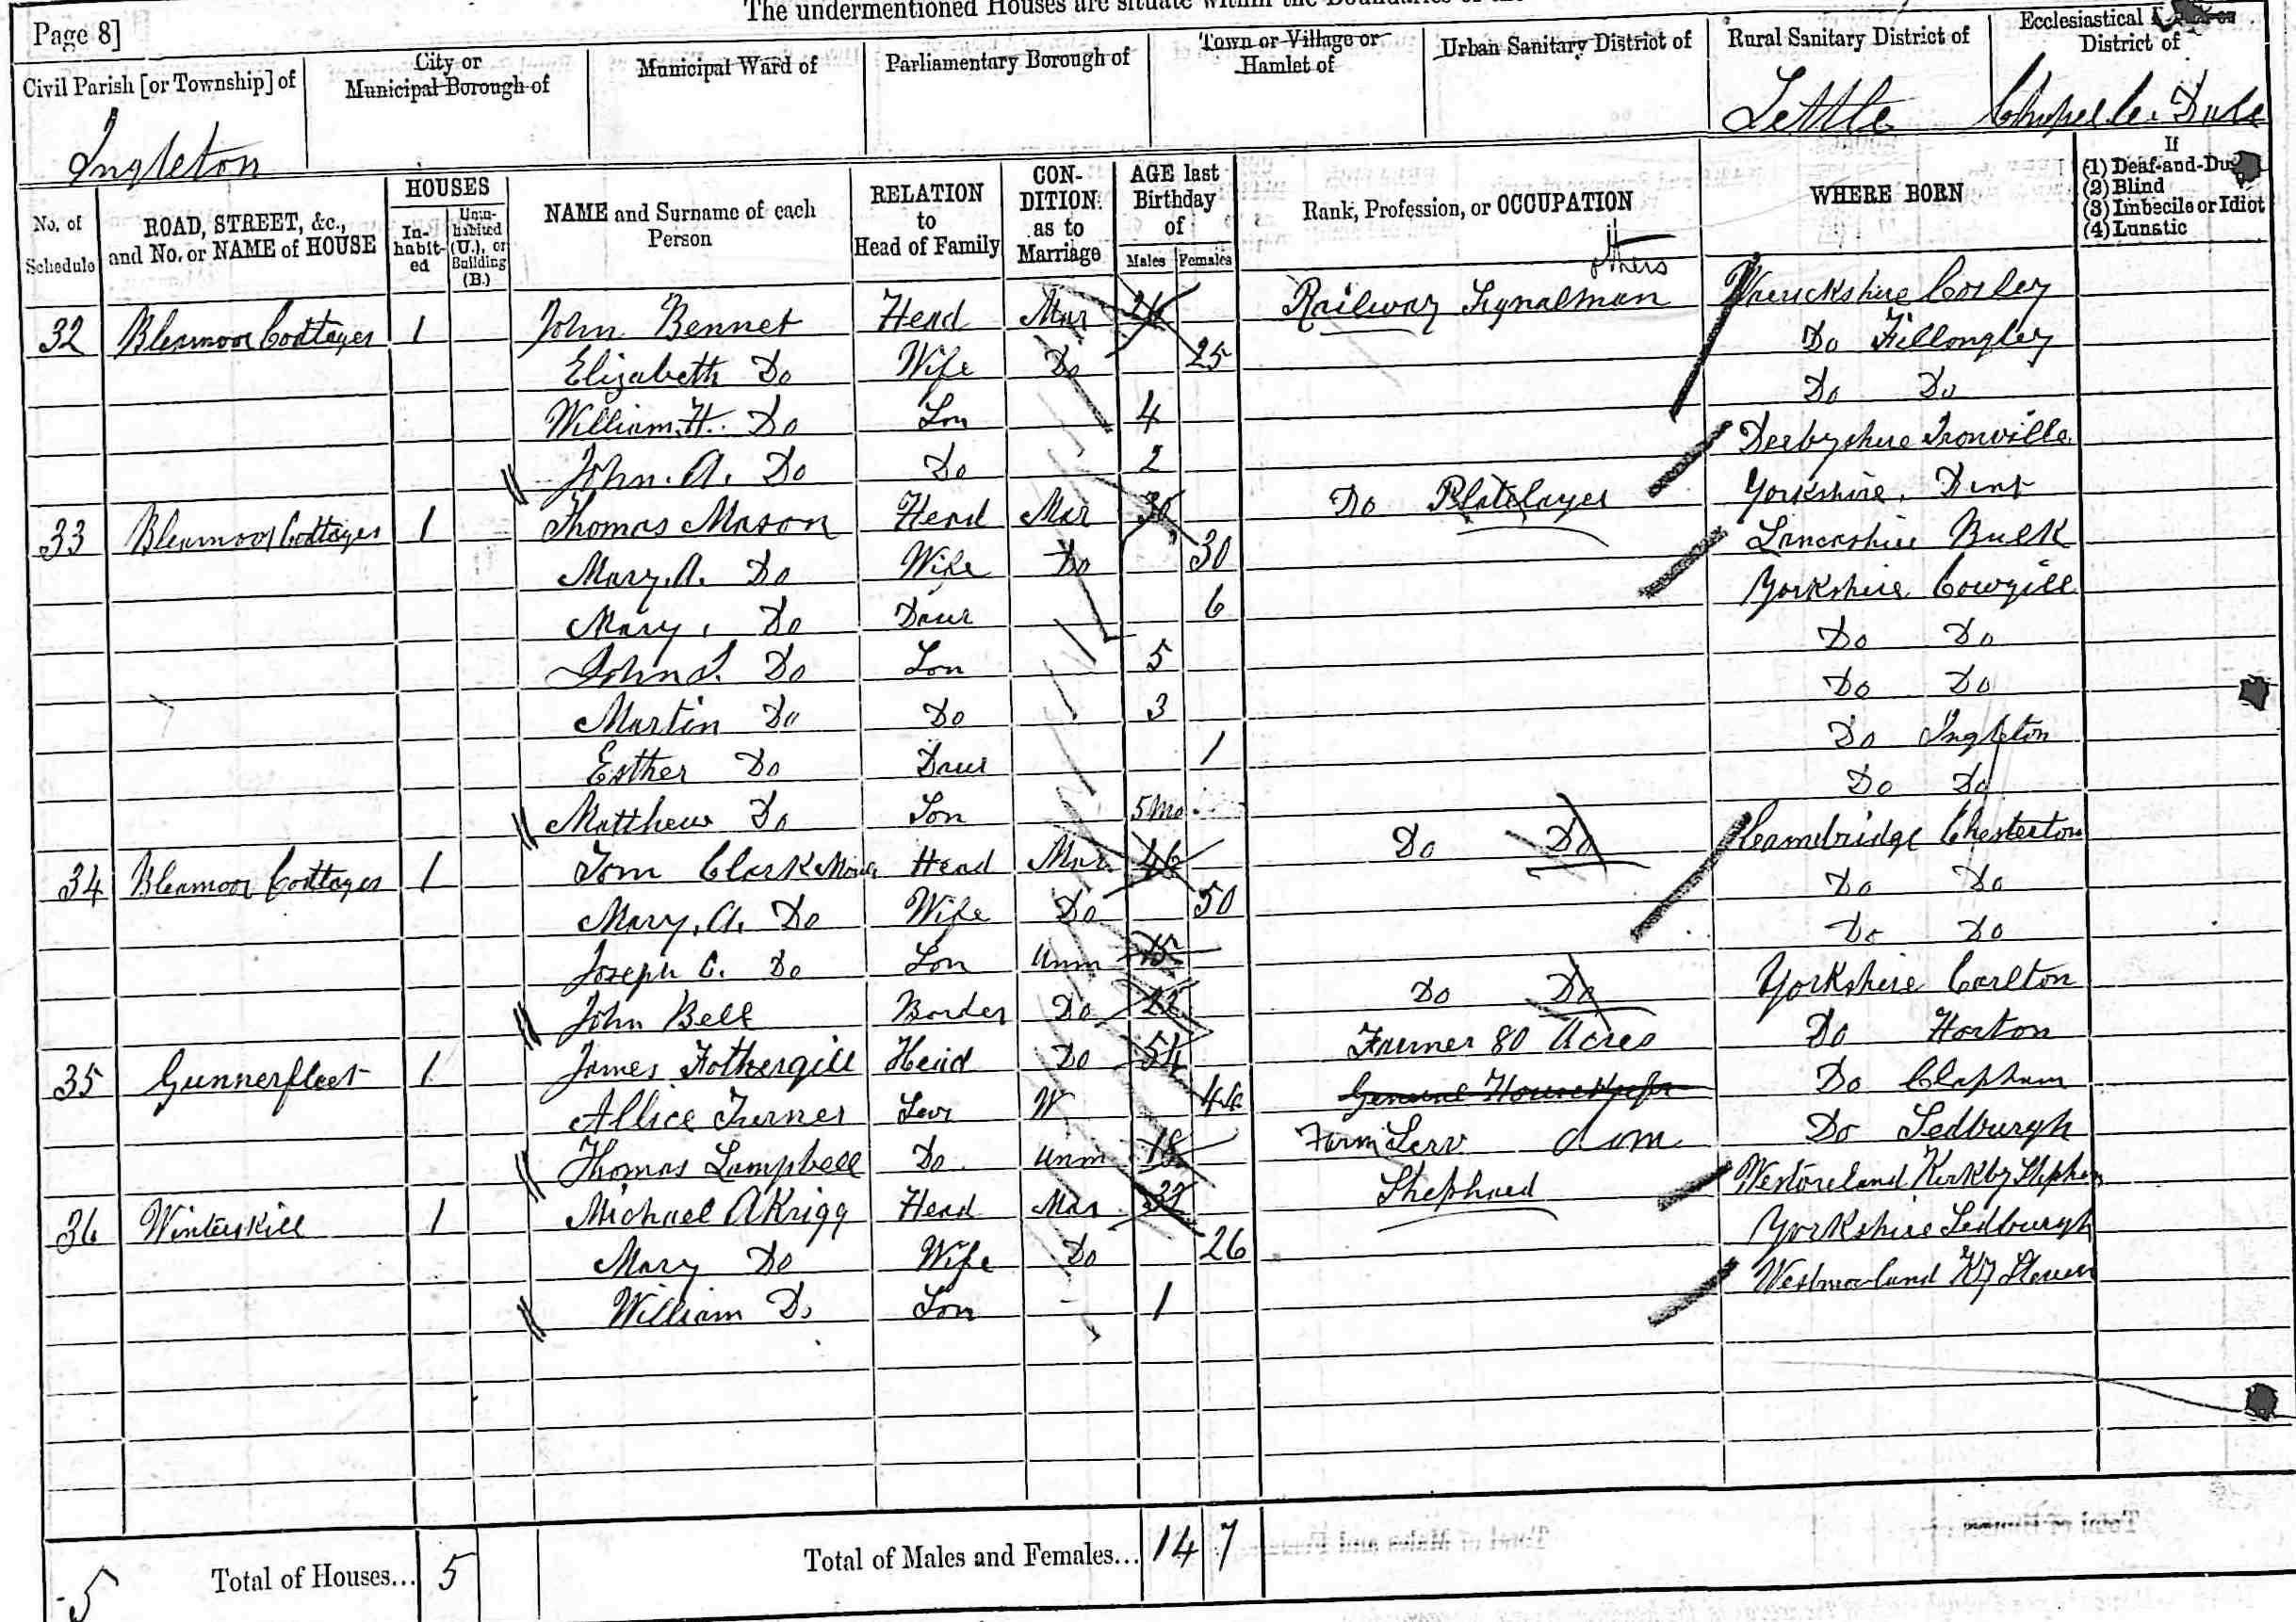 The undermentioned Houses are situate within the Boundaries of the
Page 8]
Civil Parish [or Township] of
City or Municipal Borough of
Municipal Ward of
Parliamentary Borough of
Town or Village or Hamlet of
Urban Sanitary District of
Rural Sanitary District of
Ecclesiastical District of
Ingleton Settle Chapel le Dale
No. of Schedule
ROAD, STREET, &c., and No. or NAME of HOUSE
HOUSES
In-habit-ed
Unin-habited (U.), or Building (B.)
NAME and Surname of each Person
RELATION to Head of Family
CON-DITION as to Marriage
AGE last Birthday of
Males Females
Rank, Profession, or OCCUPATION
WHERE BORN
If
(1) Deaf-and-Du
(2) Blind
(3) Imbecile or Idiot
(4) Lunatic
others
32 Bleamoor Cottages 1 John Bennet Head Mar Railway Signalman Corley
Elizabeth Do Wife Do 25 Do Fillongley
William. H. Do Son 4 Do Do
John. A. Do Do 2 Derbyshire Ironville
33 Bleamoor Cottages 1 Thomas Mason Head Mar Do Platelayer Yorkshire. Dent
Mary. A. Do Wife Do 30 Lancashire Bulk
Mary, Do Daur 6 Yorkshire Cowgill
John Do Son 5 Do Do
Martin Do Do 3 Do Do
Esther Do Daur 1 Do Ingleton
Matthew Do Son 5 Mo Do Do
34 Bleamoor Cottages 1 Tom Clark Head Mar 46 Do Do Chesterton
Mary. A. Do Wife Do 50 Do Do
Joseph C. Do Son Unm 15 Do Do
John Bell Border Do 22 Do Do Yorkshire Carlton
35 Gunnerfleet 1 James Fothergill Head Do 54 Farmer 80 Acres Do Horton
Allice Turner Serv W General Housekeeper Do Clapham
Thomas Lampbell Do Unm 18 Farm Serv Do Sedburgh
36 Winterskill 1 Michael Akrigg Head Mar Shephard Kirkby Stephen
Mary Do Wife Do 26 Yorkshire Sedburgh
William Do Son - 1 Westmorland
5 Total of Houses... 5 Total of Males and Females... 14 7